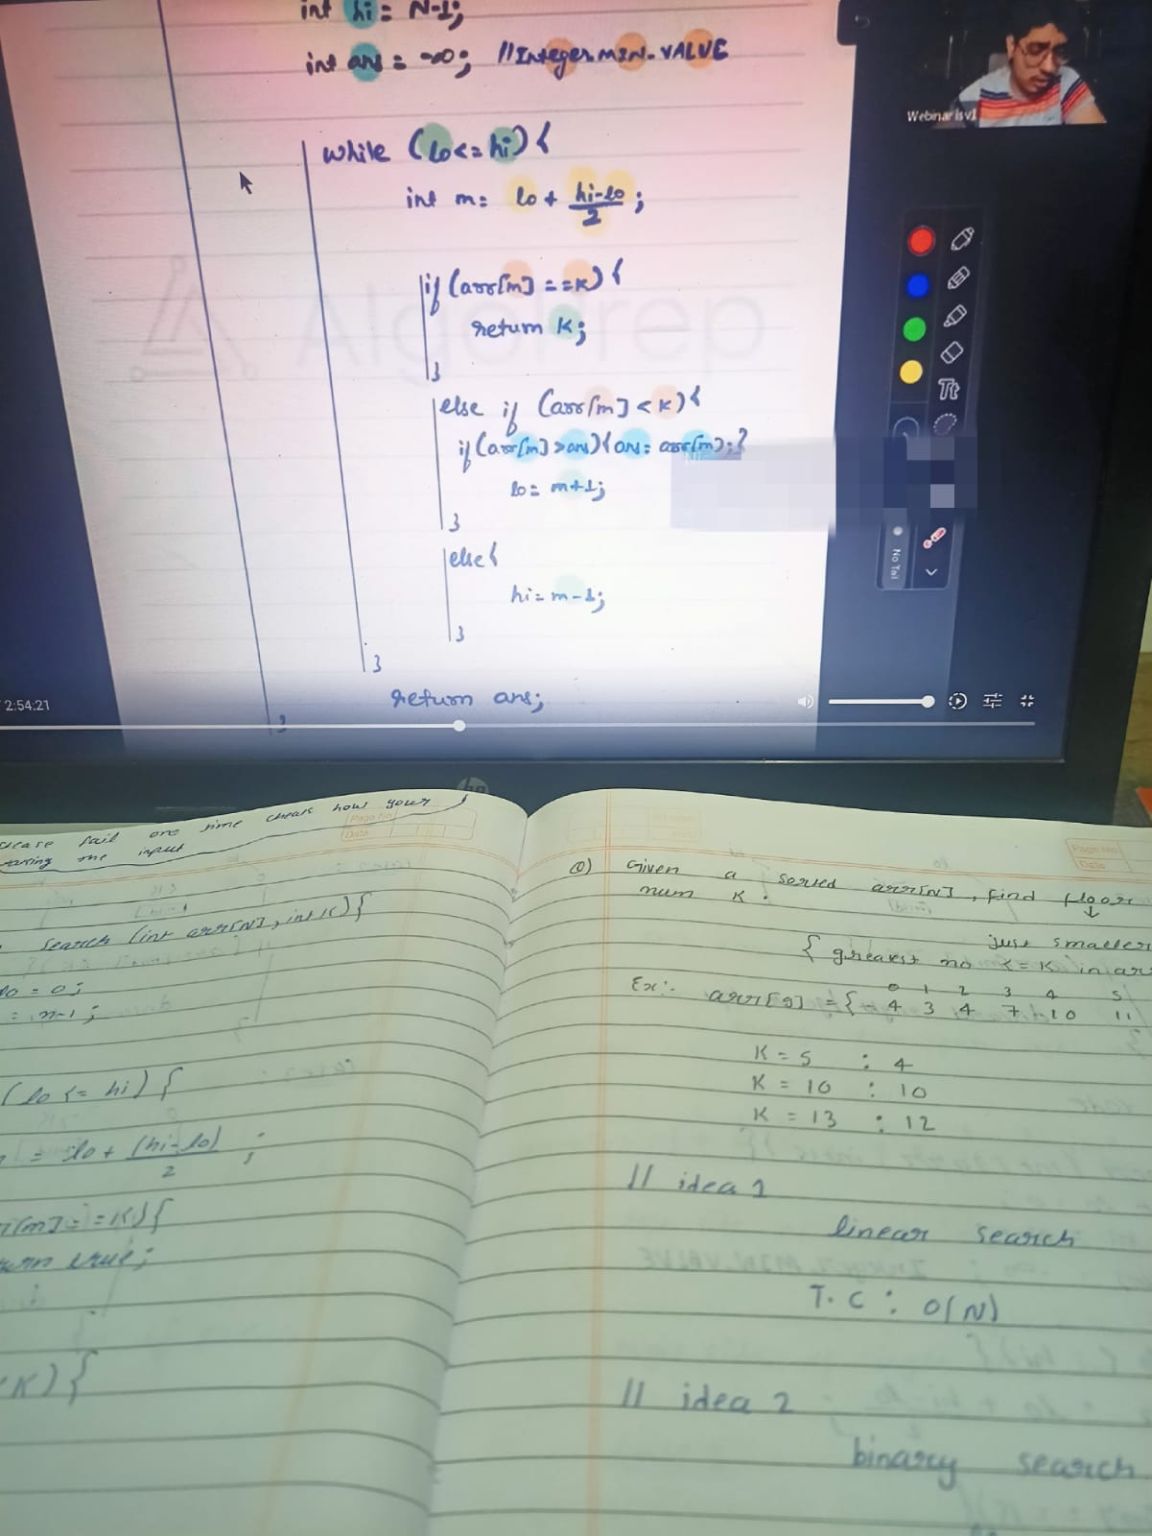 int hi = N-1;
int ans = -∞; //Integer.MIN.VALUE
while (lo<=hi){
int m= lo + hi-lo/2;
if (arr[m] ==K){
return K;
}
else if (arr[m] < K){
if(arr[m] >ans){ ans= arr[m];}
lo= m+1;
}
else{
hi= m-1;
}
}
return ans;
}
AlgoPrep
Webinar isv1
Tt
No Tal
2:54:21
hp
one time check how your
taking the input
search (int arr[N], int K){
lo = 0;
= n-1;
(lo <= hi) {
= lo + (hi-lo)/2 ;
[m] == K){
true;
K) {
Page No.
Date
Page No.
Date
Q) Given a sorted arr[N], find floor
num K.
↓
just smaller
{ greatest no <= K in
Ex:- 0 1 2 3 4 5
arr[9] = {- 4 3 4 7 10 11
K = 5 : 4
K = 10 : 10
K = 13 : 12
// idea 1
linear search
T.C : O(N)
// idea 2
binary search